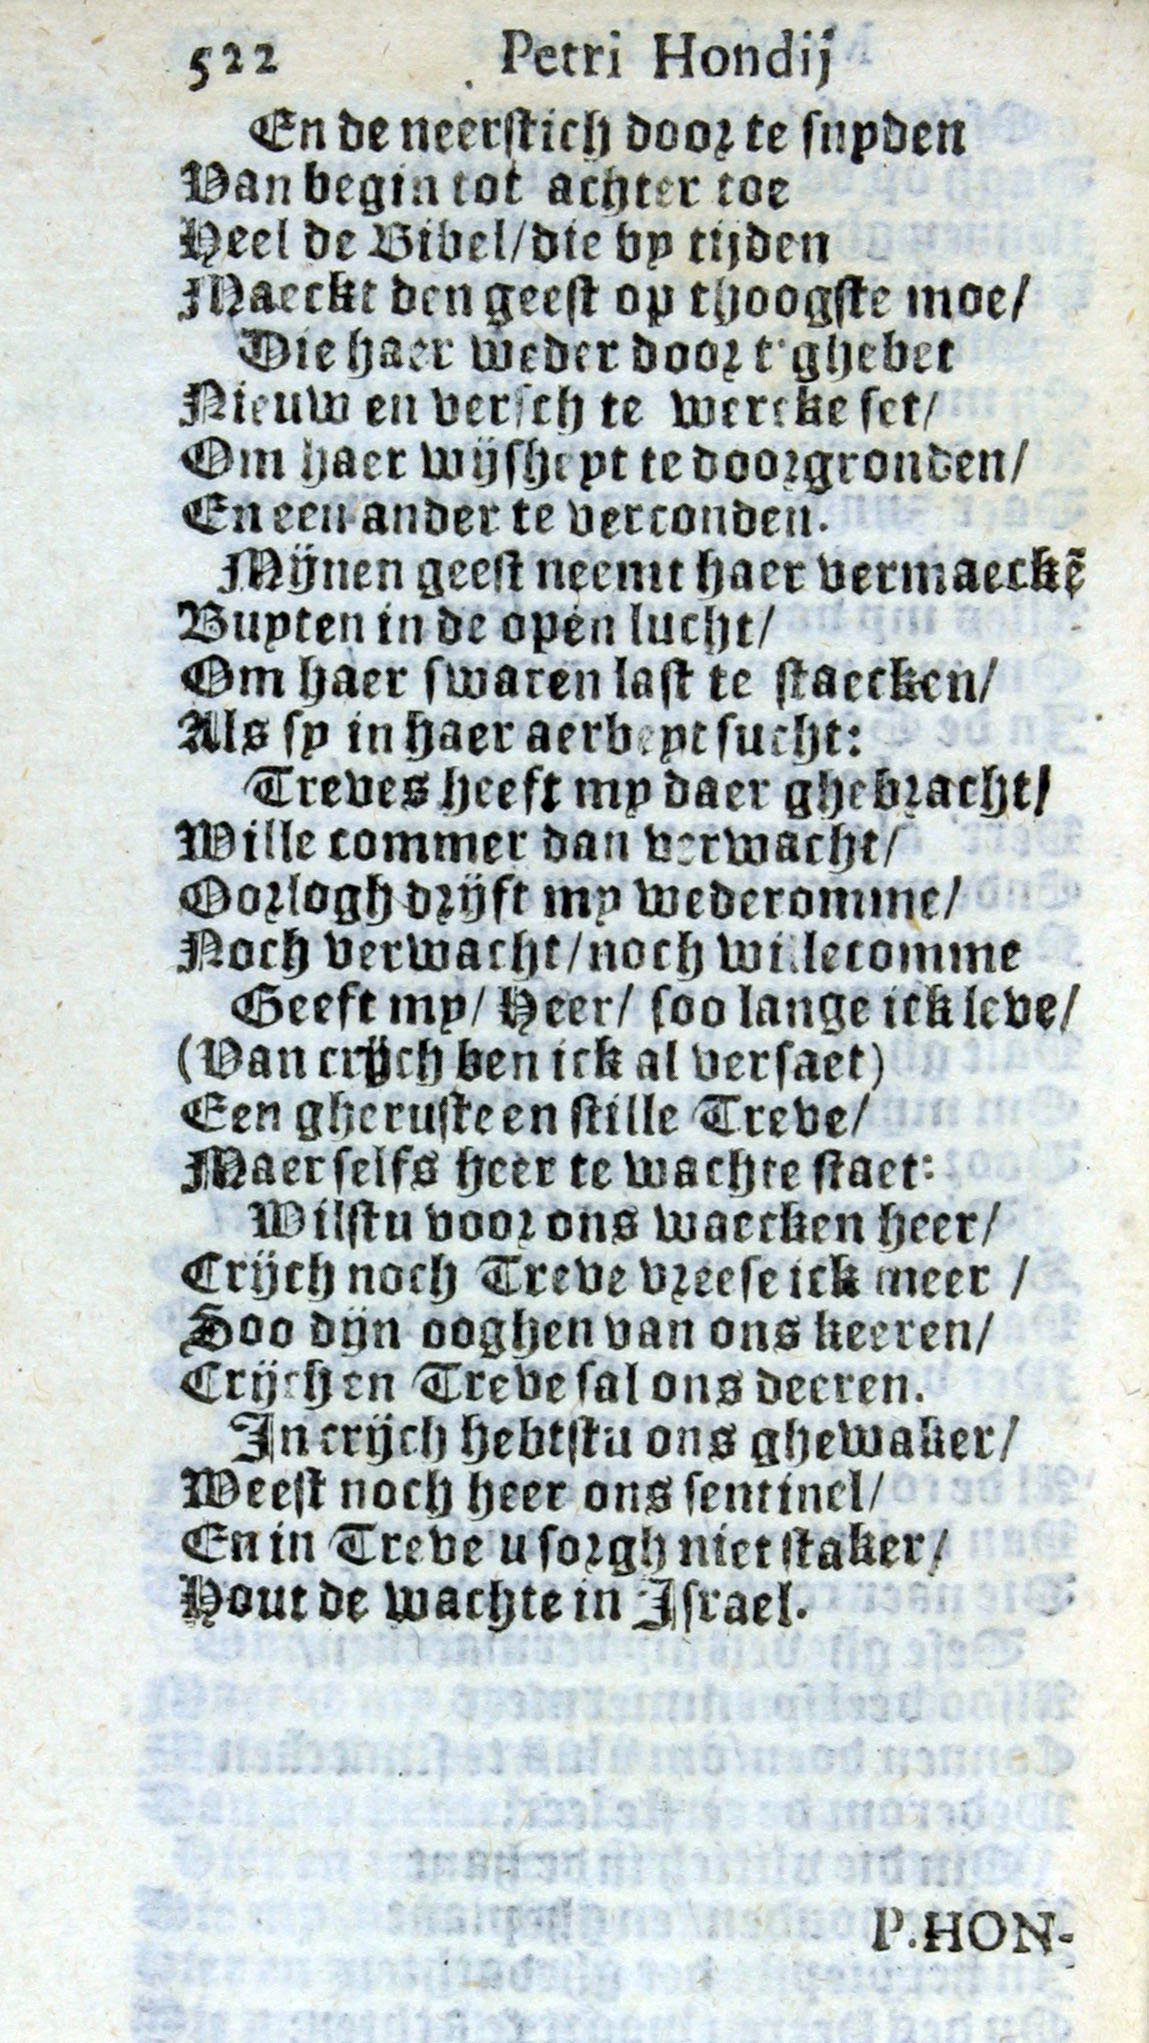 522 Petri Hondij
En de neerstich door te snyden
Van begin tot achter toe
Heel de Bibel/die by tijden
Maeckt den geest op thoogste moe/
Die haer weder door t'ghebet
Nieuw en versch te wercke set/
Om haer wijsheyt te doorgronden/
En een ander te verconden.
Mijnen geest neemt haer vermaeckē
Buyten in de open lucht/
Om haer swaren last te staecken/
Als sy in haer aerbeyt sucht:
Treves heeft my daer ghebracht/
Wille commer dan verwacht/
Oorlogh drijft my wederomme/
Noch verwacht/noch willecomme
Geeft my/ Heer/ soo lange ick leve/
(Van crijch ben ick al versaet)
Een gheruste en stille Treve/
Maer selfs heer te wachte staet:
Wilstu voor ons waecken heer/
Crijch noch Treve vreese ick meer /
Soo dijn ooghen van ons keeren/
Crijch en Treve sal ons deeren.
In crijch hebtstu ons ghewaket/
Weest noch heer ons sentinel/
En in Treve u sorgh niet staket/
Hout de wachte in Israel.
P.HON-